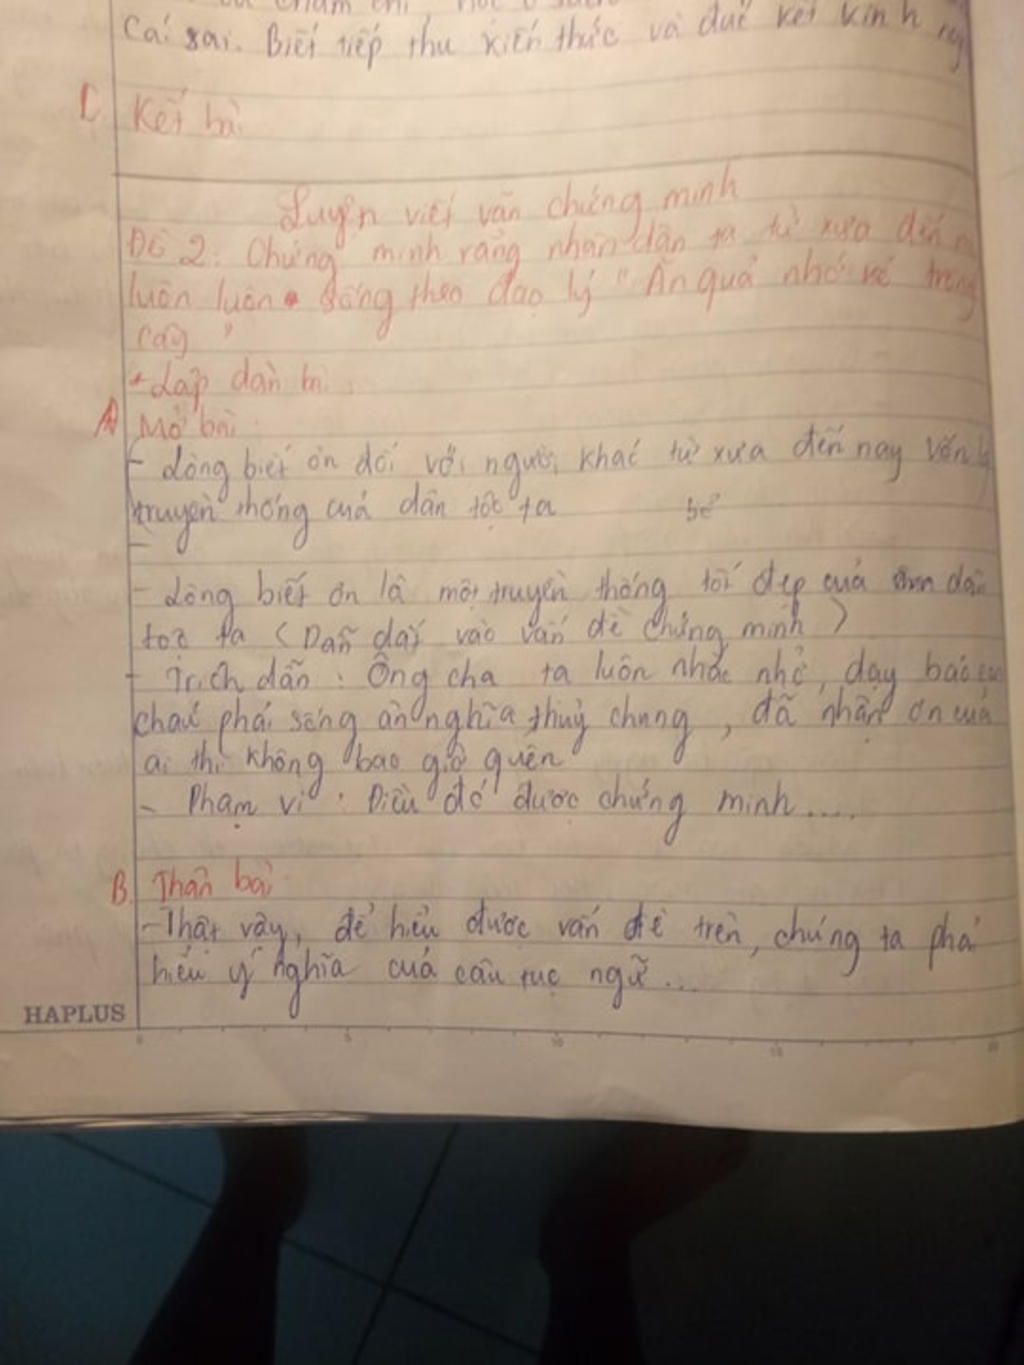 cái sai. Biết tiếp thu kiến thức và đúc kết kinh
C Kết bài
Luyện viết văn chứng minh
Đề 2: Chứng minh rằng nhân dân ta từ xưa đến
luôn luôn sống theo đạo lý "Ăn quả nhớ kẻ trồng
cây"
+ Lập dàn bài:
A Mở bài:
- Lòng biết ơn đối với người khác từ xưa đến nay vốn
truyền thống của dân tộc ta
-
- Lòng biết ơn là một truyền thống tốt đẹp của dân
tộc ta (Dẫn dắt vào vấn đề chứng minh)
- Trích dẫn: Ông cha ta luôn nhắc nhở, dạy bảo con
cháu phải sống ân nghĩa thuỷ chung, đã nhận ơn của
ai thì không bao giờ quên
- Phạm vi: Điều đó được chứng minh....
B. Thân bài
- Thật vậy, để hiểu được vấn đề trên, chúng ta phải
hiểu ý nghĩa của câu tục ngữ...
HAPLUS
0 5 10 15 20